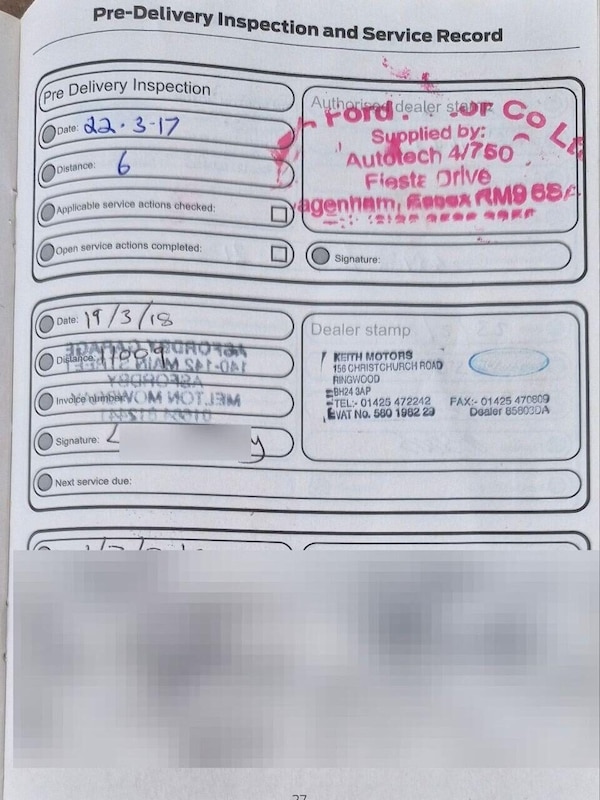 Pre-Delivery Inspection and Service Record
Pre Delivery Inspection
Date: 22.3-17
Distance: 6
Applicable service actions checked:
Open service actions completed:
Authorised dealer stamp
Ford Co
Supplied by:
Autotech 4/750
Drive
Signature:
Date: 19/3/18
Distance: 11009
Invoice number:
Signature:
Next service due:
Dealer stamp
KEITH MOTORS
156 CHRISTCHURCH ROAD
RINGWOOD
BH24 3AP
TEL:- 01425 472242 FAX:- 01425 470809
VAT No. 580 1982 29 Dealer 85803DA
ASFORDBY GARAGE
140-142 MAIN STREET
ASFORDBY
MELTON MOWBRAY
27